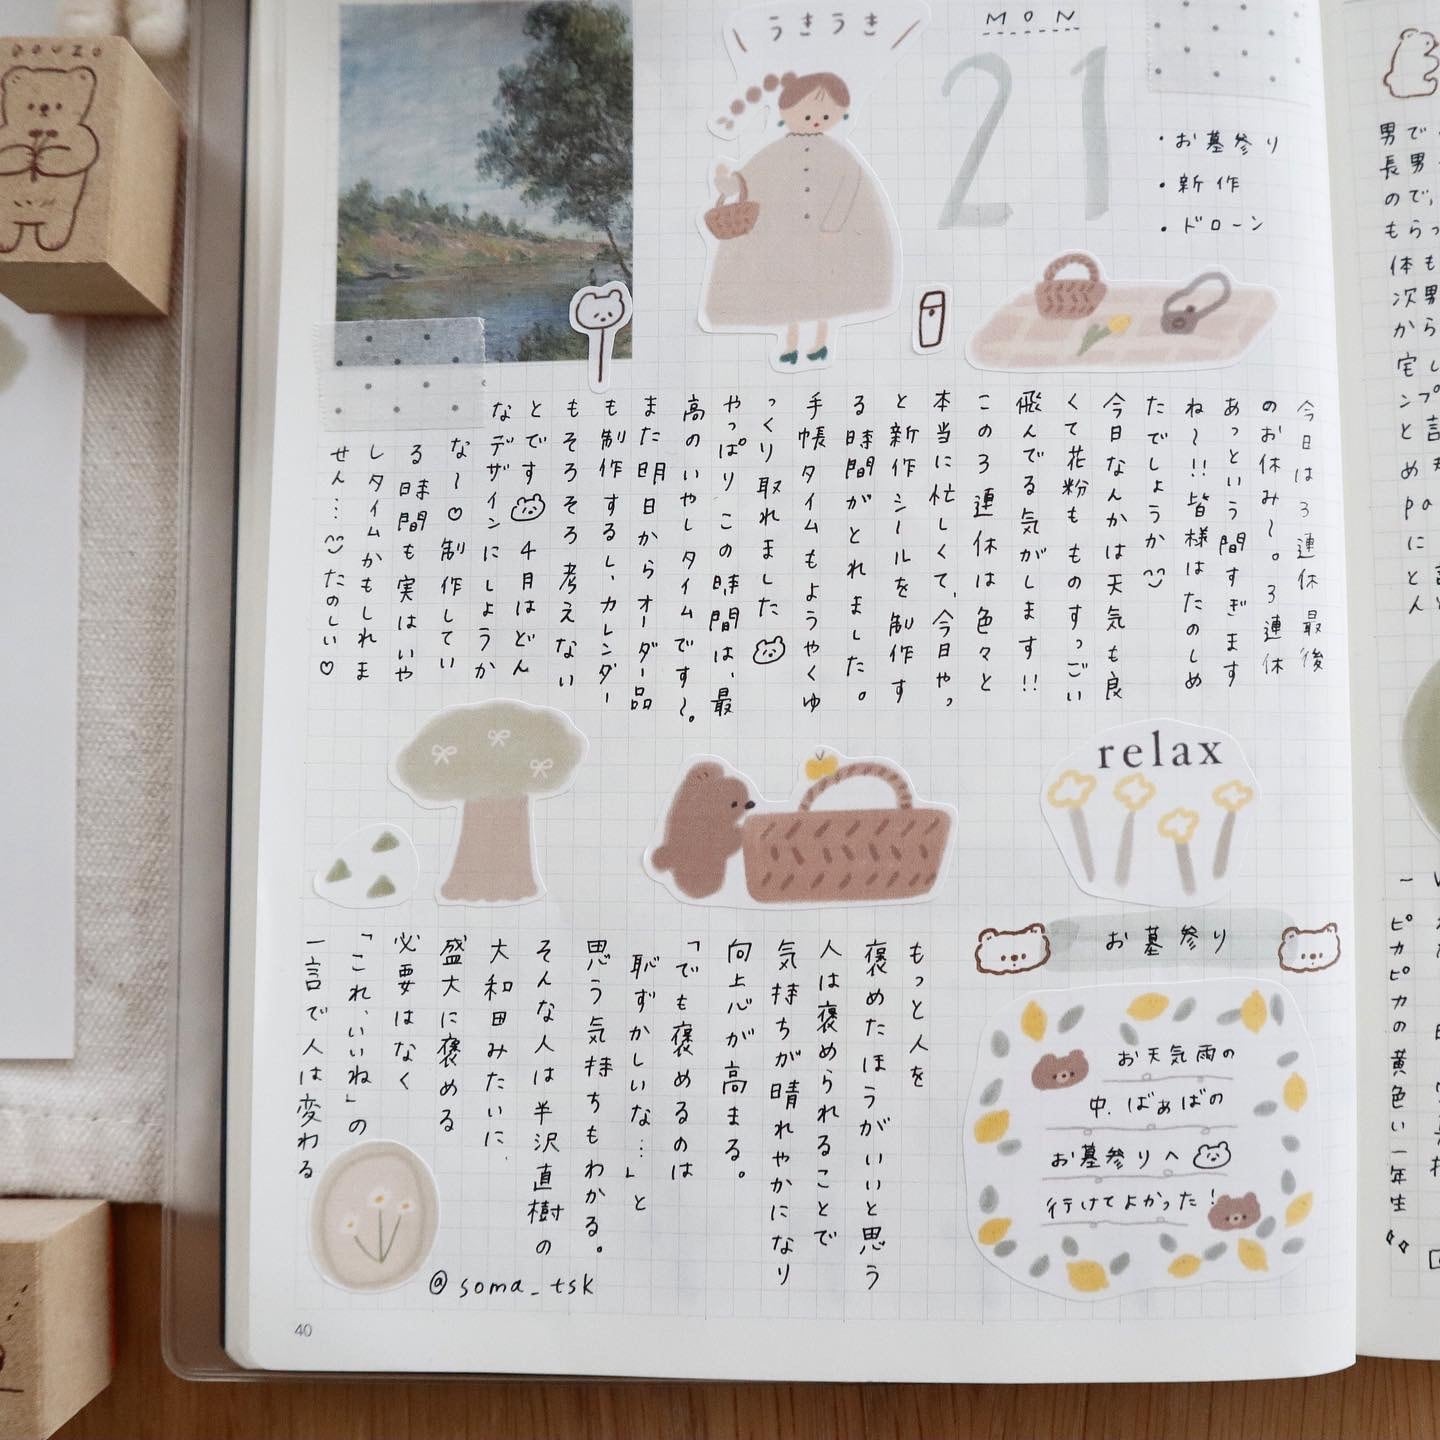 DOUZO
うきうき
MON
21
・お墓参り
・新作
・ドローン
今日は3連休最後
のお休み〜。3連休
あっという間すぎます
ね〜!!皆様はたのしめ
たでしょうか
今日なんかは天気も良
くて花粉ももものすっごい
飛んでる気がします!!
この3連休は色々と
本当に忙しくて、今日やっ
と新作シールを制作す
る時間がとれました。
手帳タイムもようやくゆ
っくり取れました
やっぱりこの時間は、最
高のいやしタイムです〜。
また明日からオーダー品
も制作するし、カレンダー
もそろそろ考えない
とです 4月はどん
なデザインにしようか
な〜♡制作してい
る時間も実はいや
しタイムかもしれま
せん…たのしい♡
relax
お墓参り
お天気雨の
中、ばぁばの
お墓参りへ
行けてよかった!
もっと人を
褒めたほうがいいと思う
人は褒められることで
気持ちが晴れやかになり
向上心が高まる。
「でも褒めるのは
恥ずかしいな…」と
思う気持ちもわかる。
そんな人は半沢直樹の
大和田みたいに、
盛大に褒める
必要はなく
「これ、いいね」の
一言で人は変わる
@soma_tsk
40
男で
長男
ので、
もらっ
体も
次男
から
ピカピカの黄色い一年生